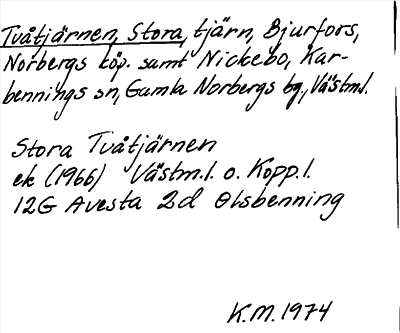 Tvåtjärnen, Stora, tjärn, Bjurfors,
Norbergs köp. samt Nickebo, Kar-
bennings sn, Gamla Norbergs bg., Västm.l.
Stora Tvåtjärnen
ek (1966) Västm.l. o. Kopp.l.
12G Avesta 2d Olsbenning
K.M. 1974